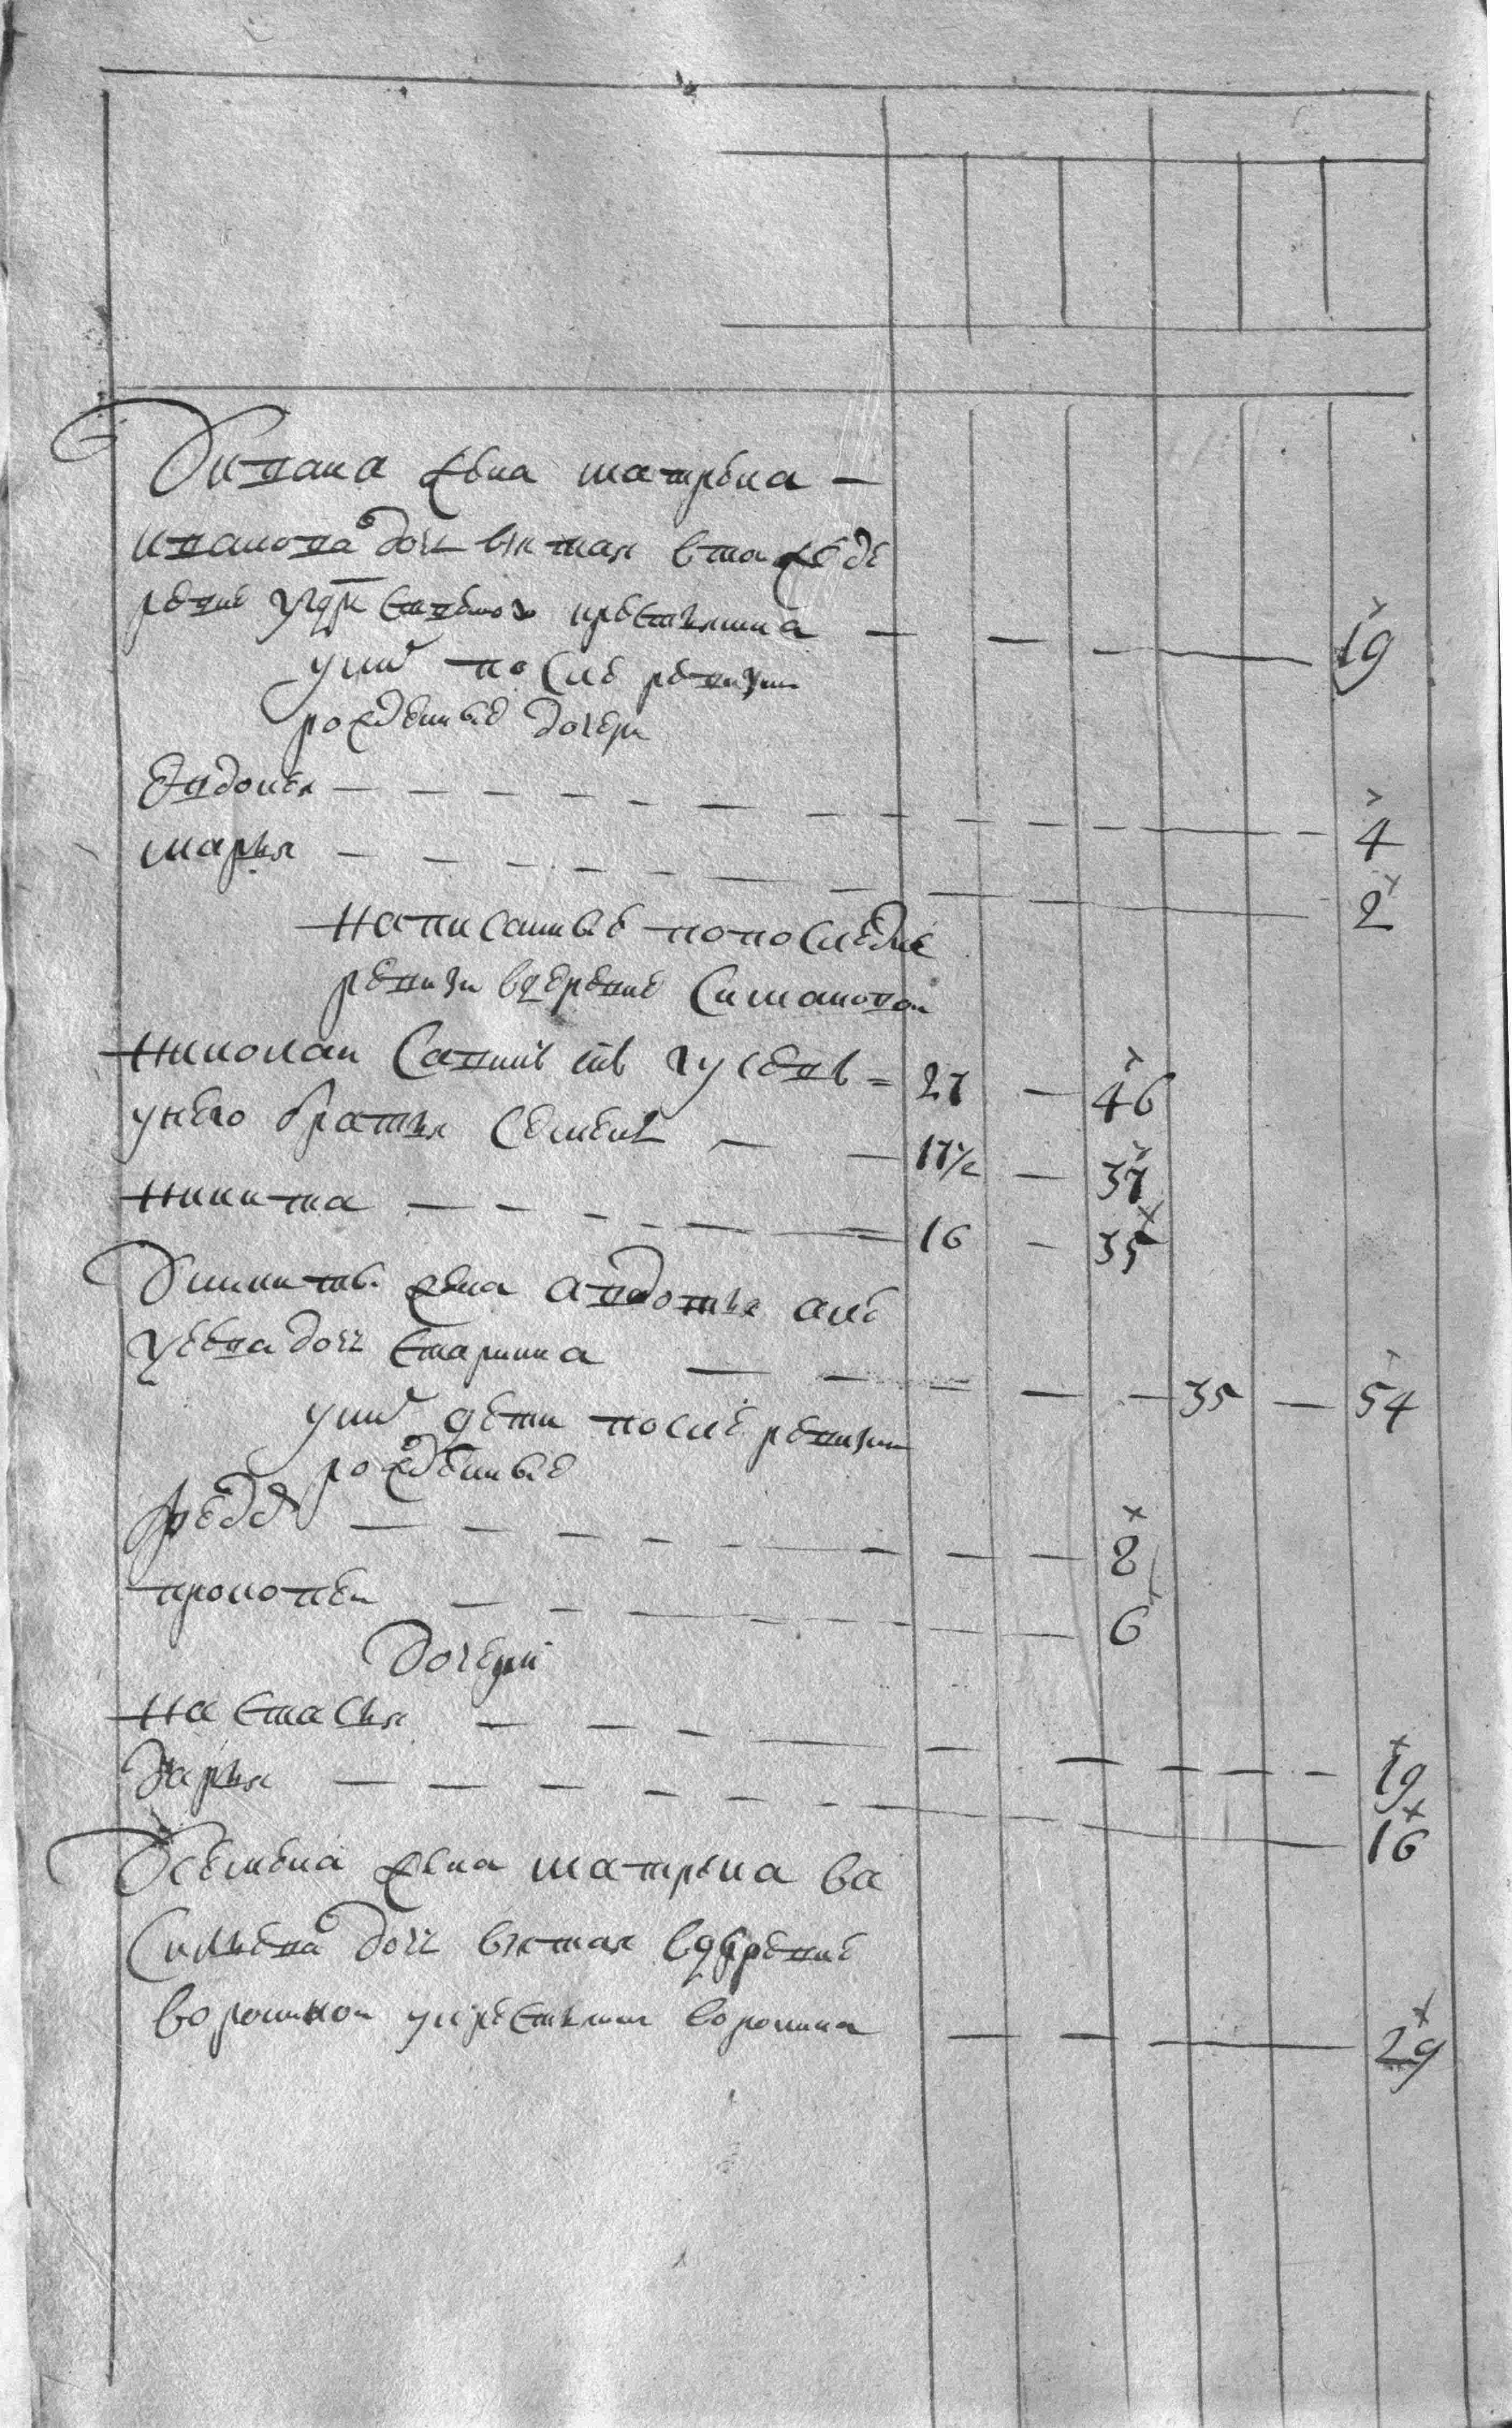 У ивана жена матрена —
иванова дочь взятая втои же де
ревне крестьянина — — — — 19
уних после ревизии
рожденные дочери
Евдокея — — — — 4
марья — — — — 2
написанные попоследне
ревизи вдеревне Симановои
николаи Саввинъ снъ гусевъ = 27 — 46
унего братья Семенъ — — 17½ — 37
никита — — — 16 — 35
У никиты жена авдотья але
ѯеева дочь старинна — — — 35 — 54
уних дети после ревизии
рожденные
федор — — — — 8
прокопеи — — — — 6
дочери
настасья — — — — 19
дарья — — — — 16
У семена жена матрена ва
сильева дочь взятая вдеревне
воронинои укрестьянина воронина — — — 29